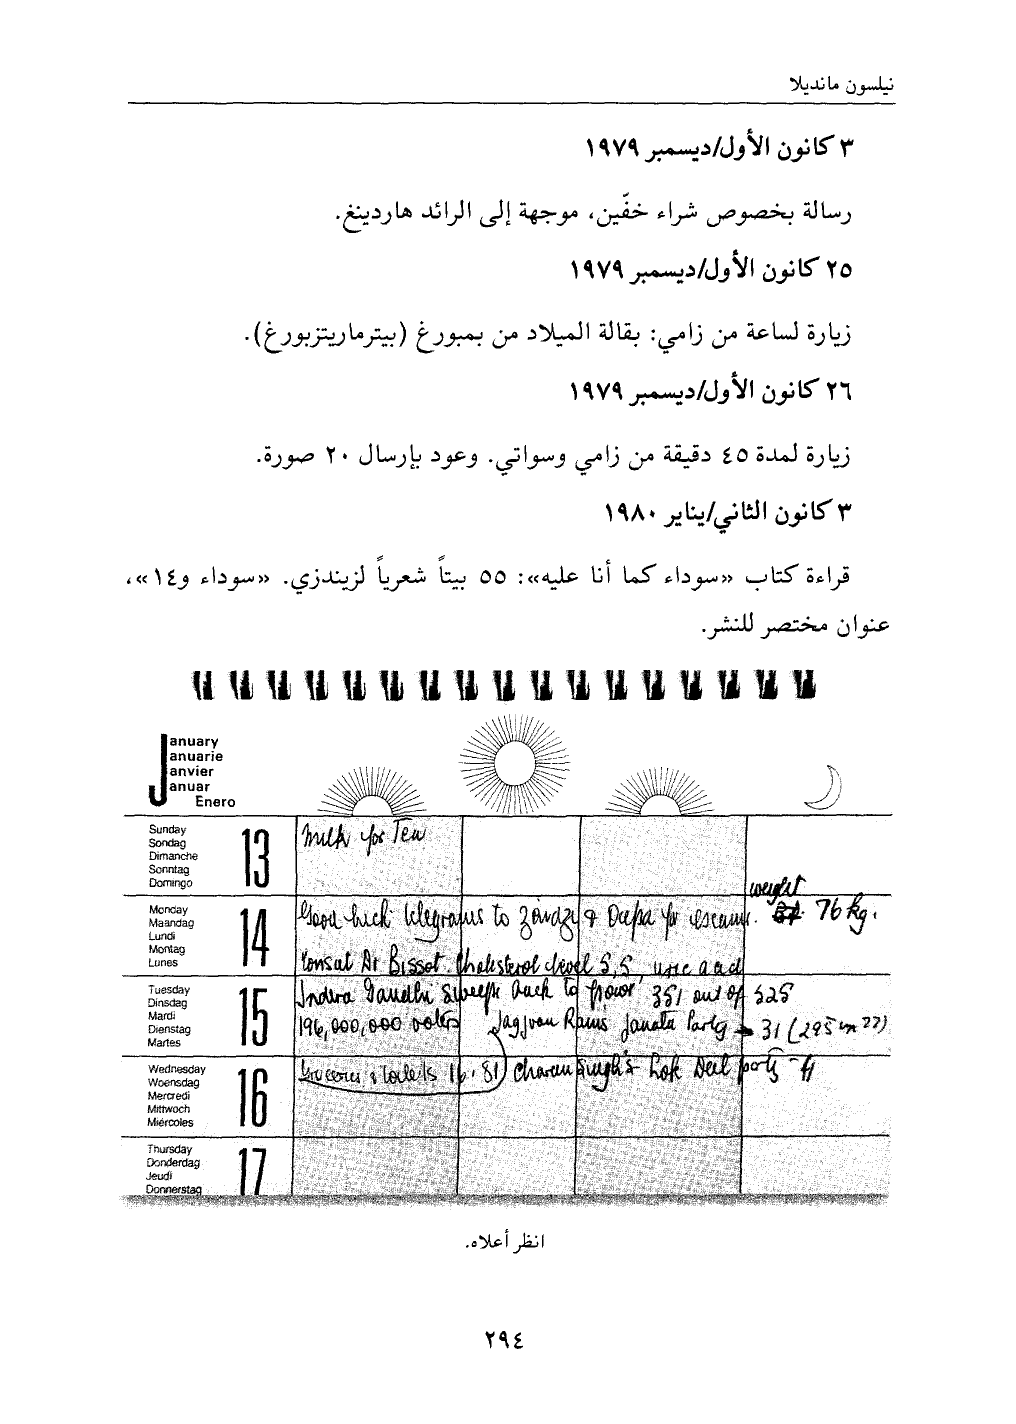 نيلسون مانديلا
٣ كانون الأول/ديسمبر ١٩٧٩
رسالة بخصوص شراء خفّين، موجهة إلى الرائد هاردينغ.
٢٥ كانون الأول/ديسمبر ١٩٧٩
زيارة لساعة من زامي: بقالة الميلاد من بمبورغ (بيترماريتزبورغ).
٢٦ كانون الأول/ديسمبر ١٩٧٩
زيارة لمدة ٤٥ دقيقة من زامي وسواتي. وعود بإرسال ٢٠ صورة.
٣ كانون الثاني/يناير ١٩٨٠
قراءة كتاب «سوداء كما أنا عليه»: ٥٥ بيتاً شعرياً لزيندزي. «سوداء و١٤»،
عنوان مختصر للنشر.
January
Januarie
Janvier
Januar
Enero
Sunday
Sondag
Dimanche
Sonntag
Domingo
13
Milk for Tea
Monday
Maandag
Lundi
Montag
Lunes
14
weight
Good luck telegrams to Zindzi & Oupa for exams. 76 kg.
Consult Dr Bisset. Cholesterol level 5,5, uric acid
Tuesday
Dinsdag
Mardi
Dienstag
Martes
15
Indira Gandhi sweeps back to power 351 out of 525
196,000,000 voters Jagjvan Rams Janata Party 31 (295 in 77)
Wednesday
Woensdag
Mercredi
Mittwoch
Miércoles
16
Groceries & toilets 16.81 Charan Singh's Lok Dal party
Thursday
Donderdag
Jeudi
Donnerstag
17
انظر أعلاه.
٢٩٤